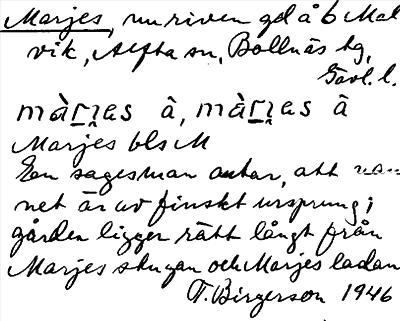 Marjes, nu riven gd å b Mal
vik, Alfta sn, Bollnäs tg,
Gävl. l.
màr̠n̠as â, màr̠n̠as â
Marjes bls M
En sagesman antar, att nam
net är av finskt ursprung;
gården ligger rätt långt från
Marjes stugan och Marjes ladan
T. Birgerson 1946